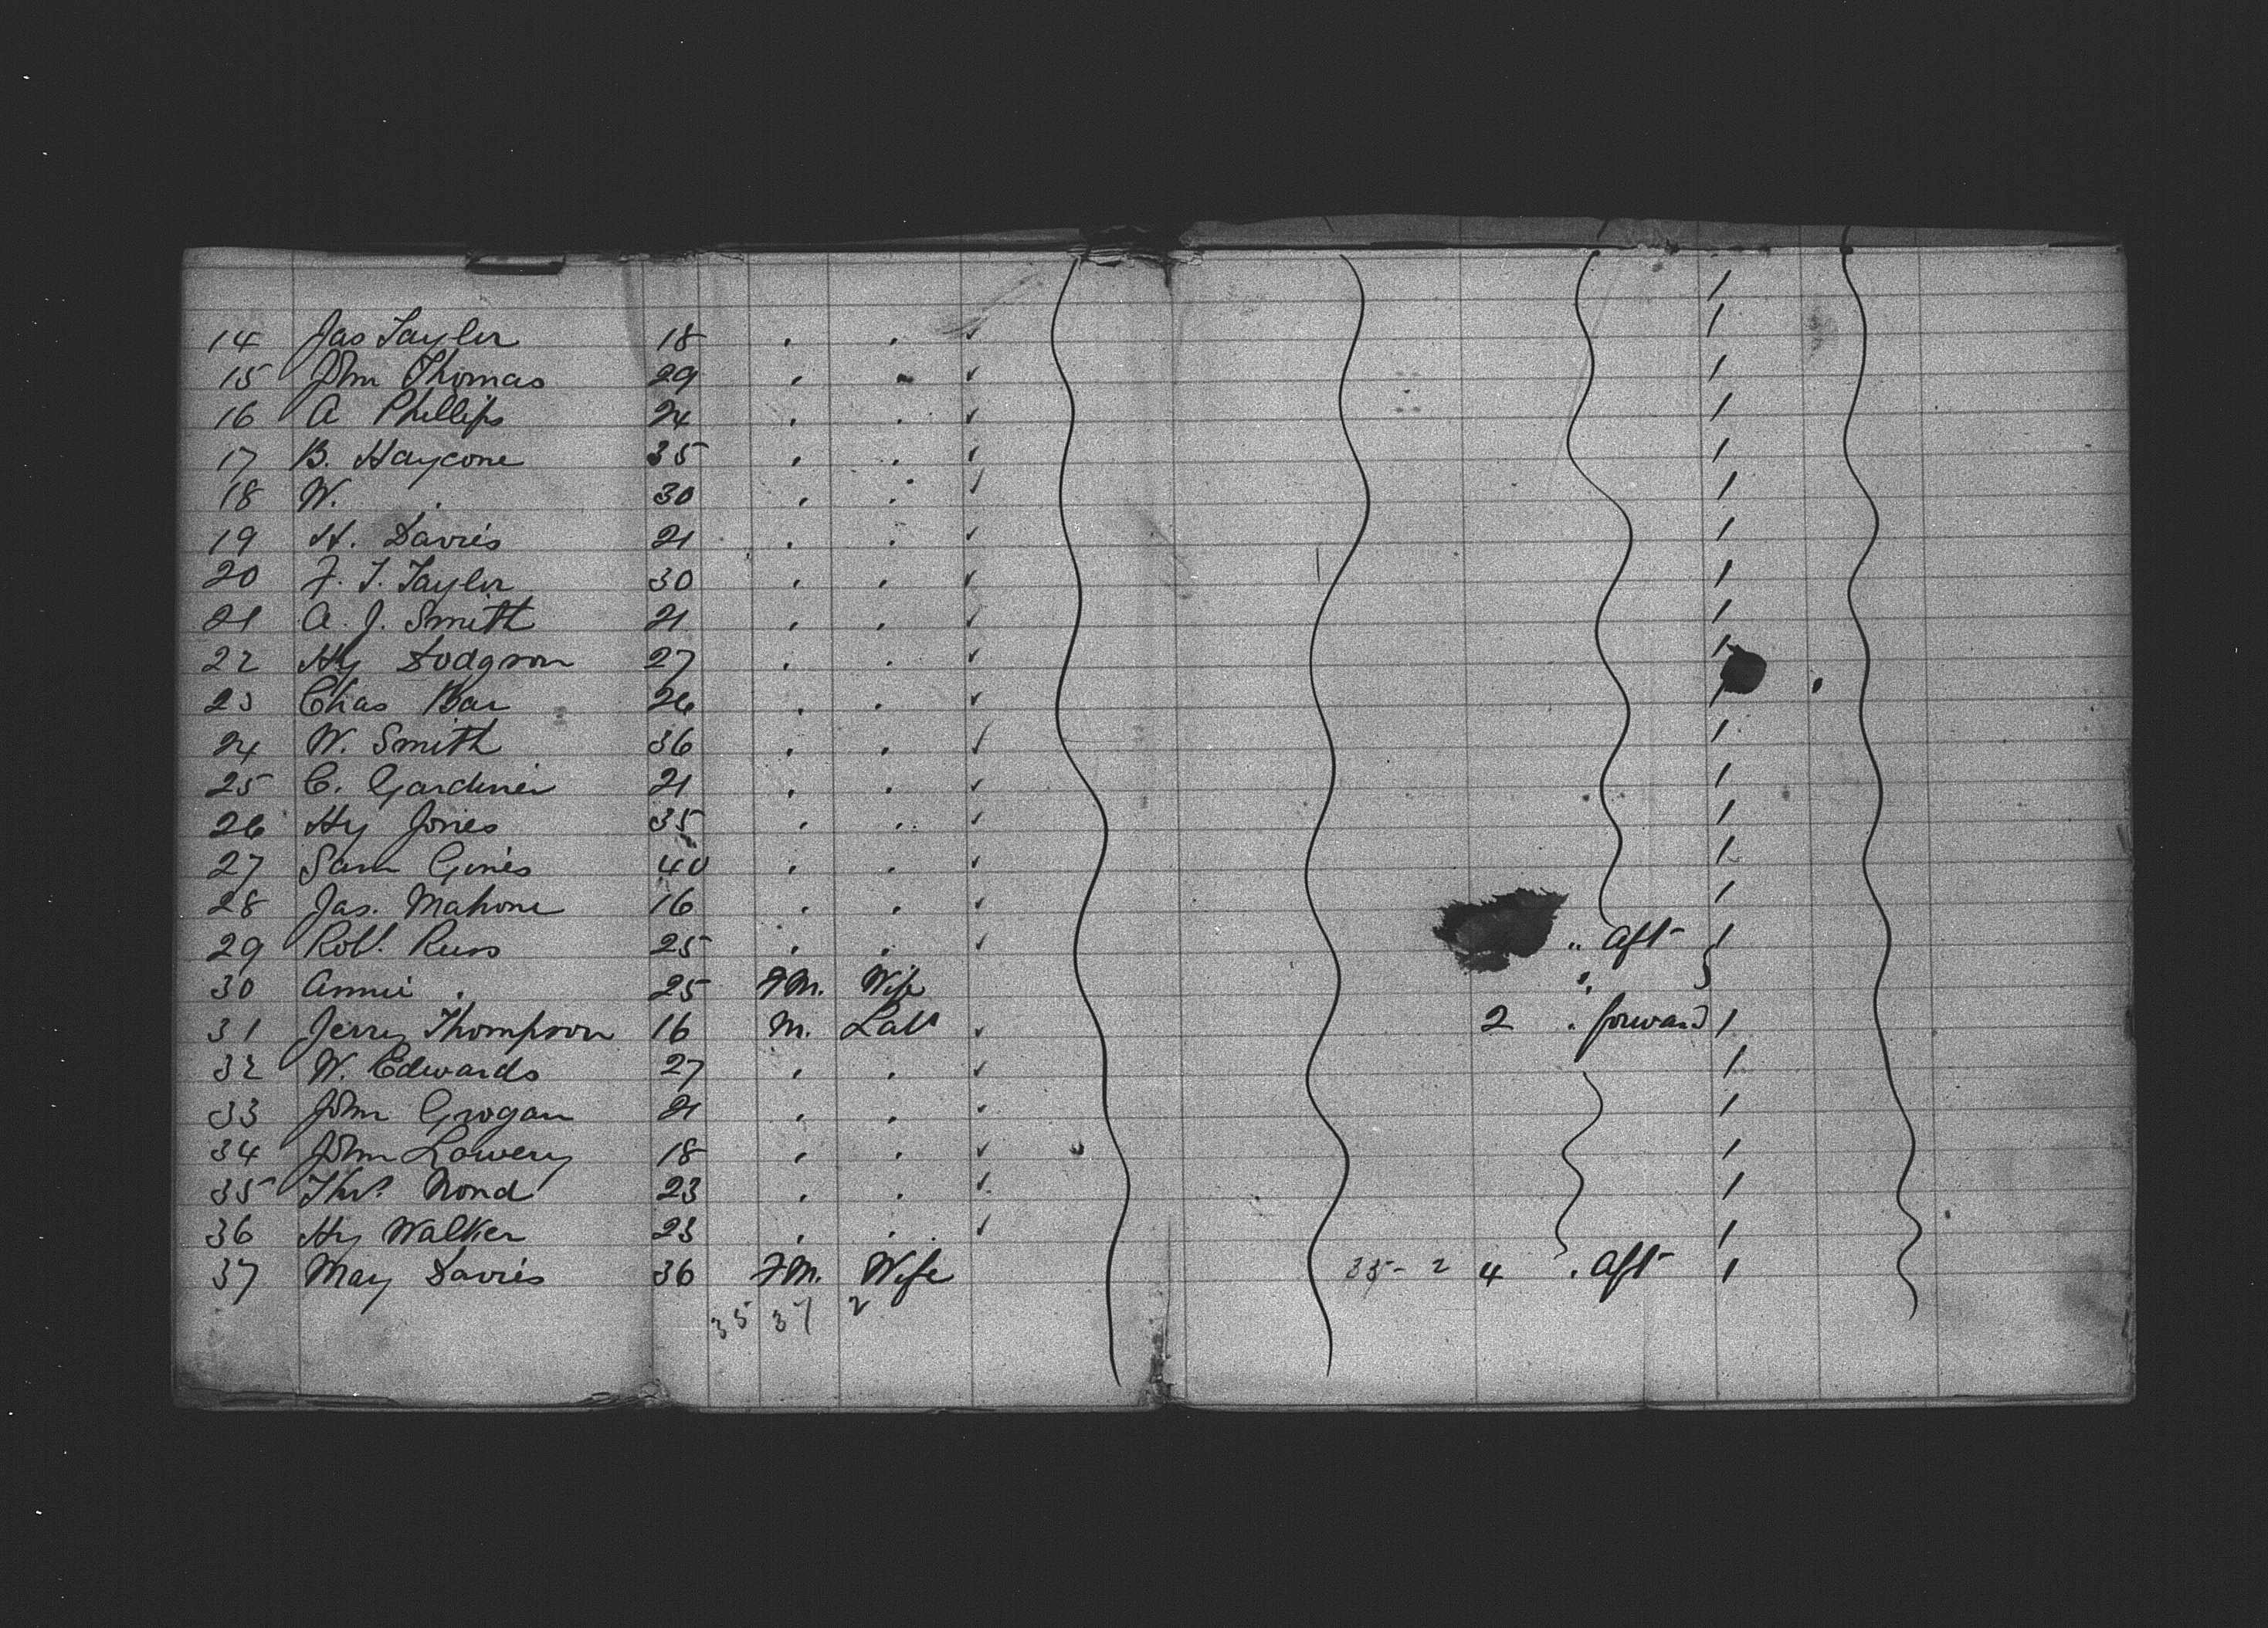 14 Jas Taylor 18 " " ✓ /
15 John Thomas 29 " " ✓ /
16 A Phillips 24 " " ✓ /
17 B. Haycone 35 " " ✓ /
18 W. " 30 " " ✓ /
19 H. Davies 21 " " ✓ /
20 F. T. Taylor 30 " " ✓ /
21 A. J. Smith 21 " " ✓ /
22 Hy Dodgson 27 " " ✓ /
23 Chas Bar 26 " " ✓ /
24 W. Smith 36 " " ✓ /
25 C. Gardiner 21 " " ✓ /
26 Hy Jones 35 " " ✓ /
27 Sam 40 " " ✓ /
28 Jas. Mahone 16 " " ✓ /
29 Robt. Russ 25 " " ✓ " aft /
30 Annie " 25 FM. Wife "
31 Jerry Thompson 16 M. Lab ✓ 2 " forward /
32 W. Edwards 27 " " ✓ /
33 John Grogan 21 " " ✓ /
34 John Lowery 18 " " ✓ /
35 Thos. Nond 23 " " ✓ /
36 Hy Walker 23 " " ✓ /
37 May Davies 36 FM. Wife 35 - 2 4 " aft /
35 37 2